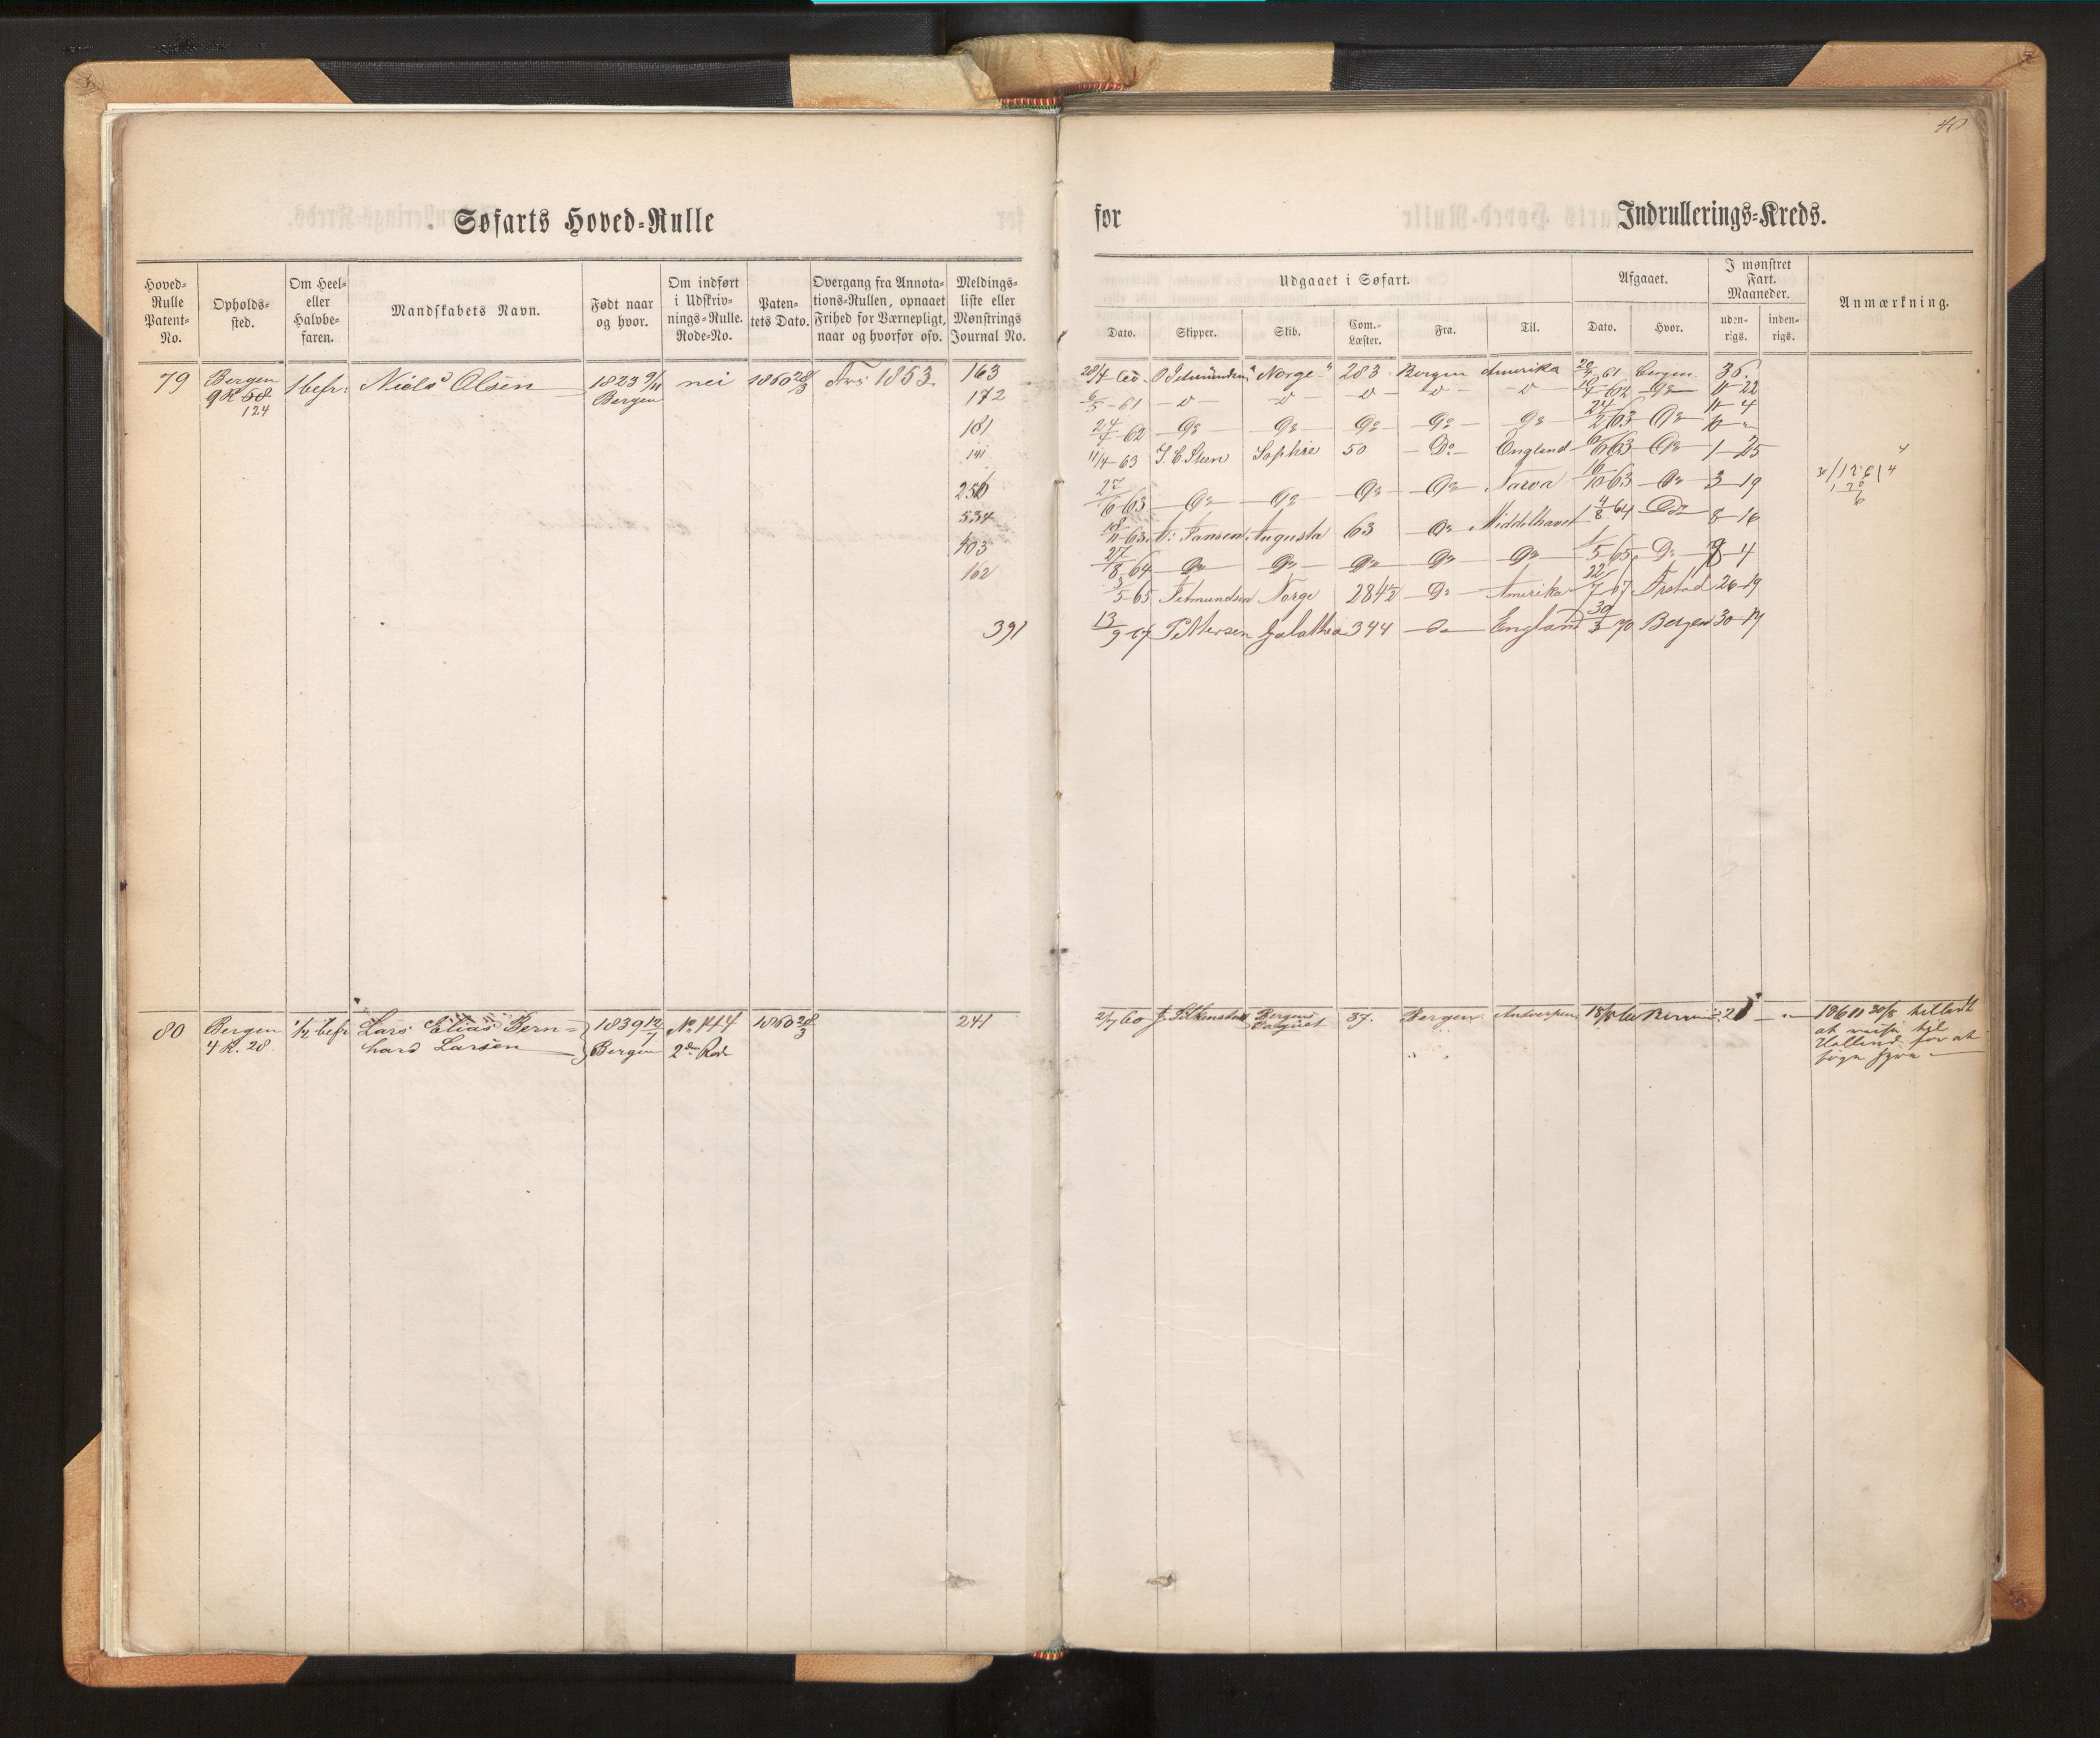 40
Søfarts Hoved-Rulle
for
Indrullerings-Kreds.
Hoved-Rulle Patent-No.
Opholds-sted.
Om Heel- eller Halvbe-faren.
Mandskabets Navn.
Født naar og hvor.
Om indført i Udskriv-nings-Rulle. Rode-No.
Paten-tets Dato.
Overgang fra Annota-tions-Rullen, opnaaet Frihed for Værnepligt, naar og hvorfor osv.
Meldings-liste eller Mønstrings Journal No.
Udgaaet i Søfart.
Afgaaet.
I mønstret Fart. Maaneder.
Anmærkning.
Dato. Skipper. Skib. Com.-Læster. Fra. Til. Dato. Hvor. uden-rigs. inden-rigs.
79 Bergen 1 befr: Niels Olsen 1823 9/11 nei 1860 28/3 1853. 163
9 R 58 Bergen 172
124
181
141
256
534
103
162
391
28/4 60 Norge 283 Bergen Amerika 61 Bergen 36.
6/5 - 61 - " - 62 Do 22
24/4 - 62 - Do - Do - Do - Do - Do 24/2 63 Do 4
11/4 - 63 J. C. Steen Sophie 50 - Do - England 63 Do 1 - 25
27/6 63 - Do - Do - Do - Do - Narva 16/10 63 - Do - 3 - 19
18/11 63 Jansen Augusta 63 Do Middelhavet 4/8 64 Do 8 - 16
27/8 64 Do Do Do Do Do 1/5 65 Do 8 - 4
3/5 - 65 Setmundsen Norge 284 1/2 - Do - Amerika 22/7 67 26 - 19
13/9 - 67 Pettersen Galathea 344 - Do - England 30/3 70 Bergen 30 - 17
80 Bergen 1/2 befr Lars Elias Bern= 1839 12/7 No 1414 1860 28/3 241
4 R. 28. hard Larsen Bergen 2den Rode
2/7 60 Bergens 37. Bergen Antwerpen 18/8 60
Paquet
1860 20/8 tilladt
at reise til
Holland for at
søge Hyre